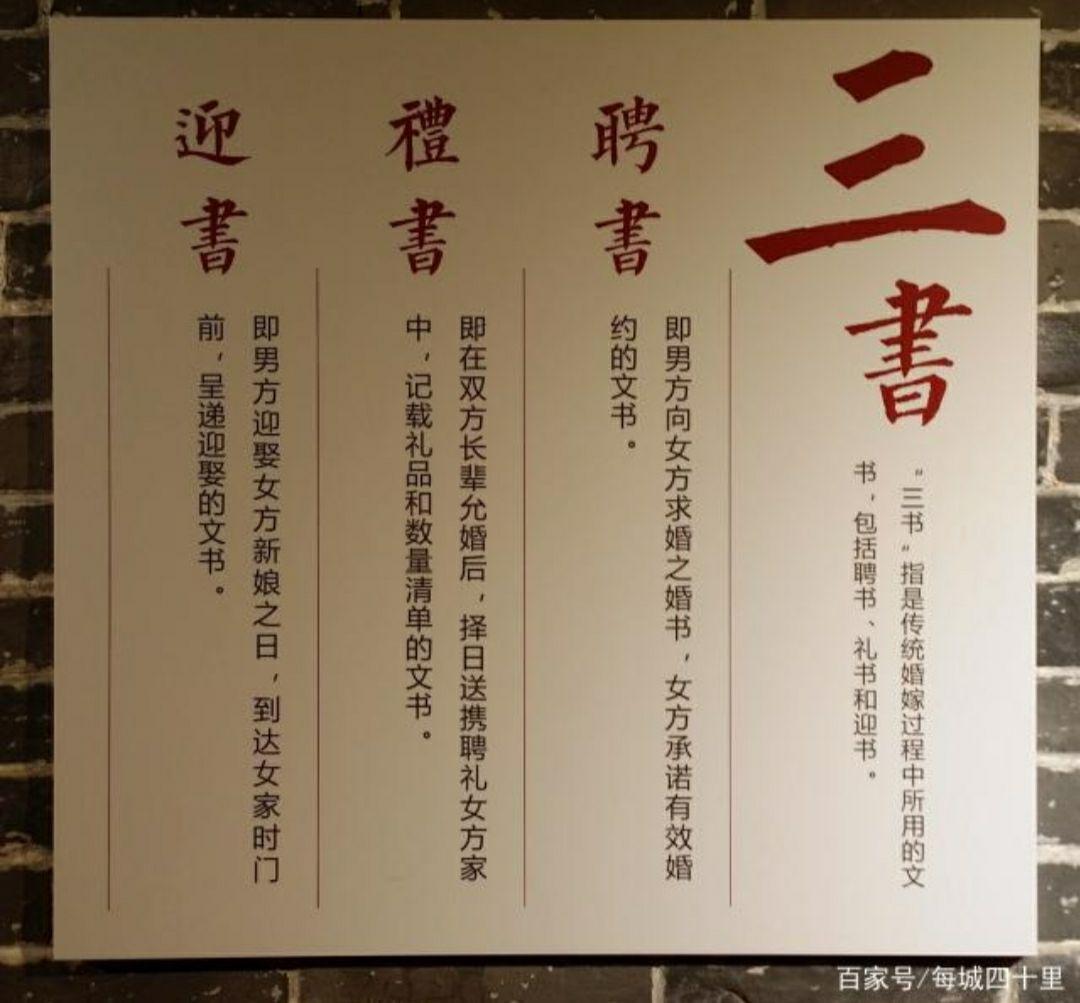 三書
“三书”指是传统婚嫁过程中所用的文
书，包括聘书、礼书和迎书。
聘書
即男方向女方求婚之婚书，女方承诺有效婚
约的文书。
禮書
即在双方长辈允婚后，择日送携聘礼女方家
中，记载礼品和数量清单的文书。
迎書
即男方迎娶女方新娘之日，到达女家时门
前，呈递迎娶的文书。
百家号/每城四十里